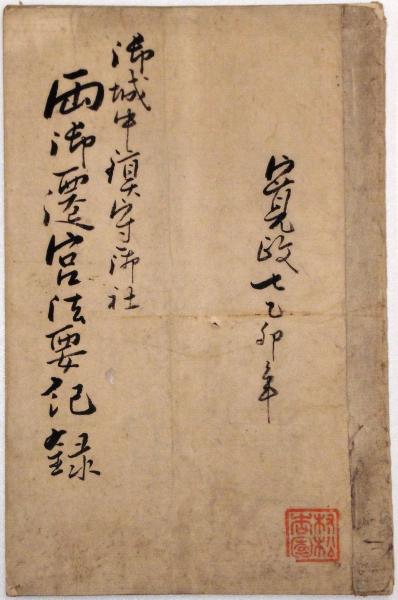 寛政七乙卯年
御城中鎮守御社
両御遷宮法要記録